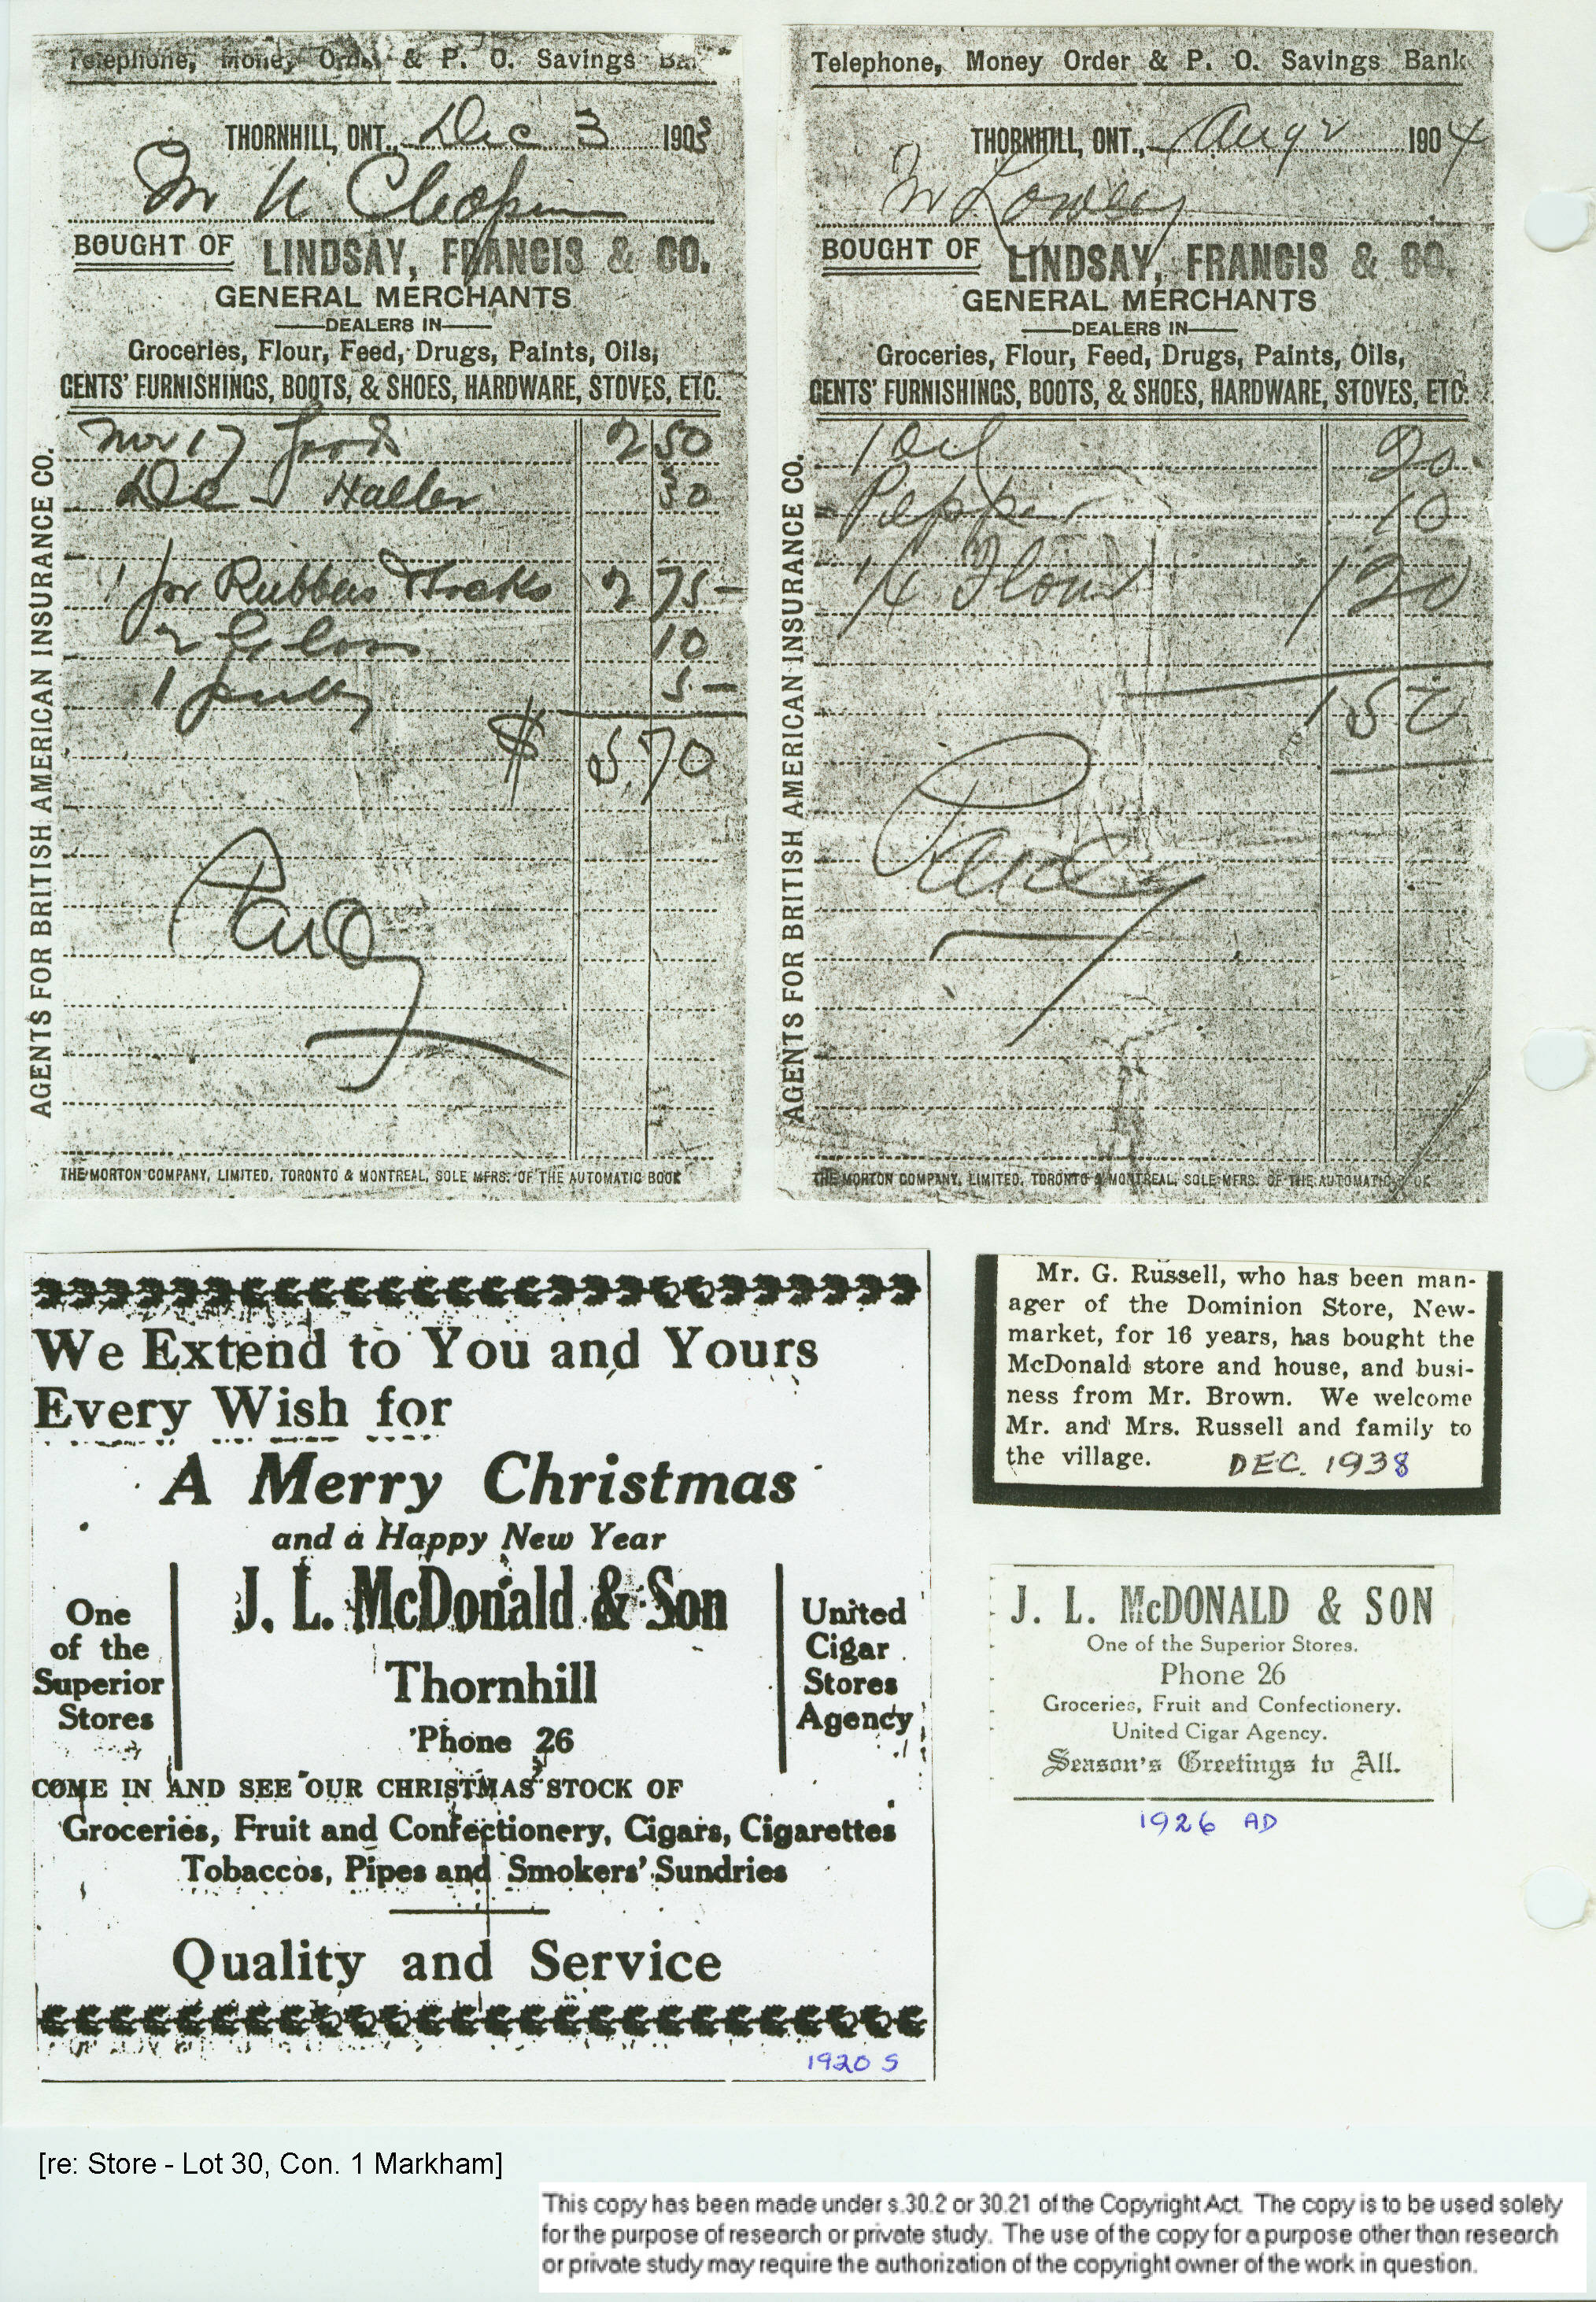 Telephone, Money Order & P. O. Savings Bank
THORNHILL, ONT., Dec 3 1903
Mr
BOUGHT OF LINDSAY, FRANCIS & CO.
GENERAL MERCHANTS
DEALERS IN
Groceries, Flour, Feed, Drugs, Paints, Oils,
GENTS' FURNISHINGS, BOOTS, & SHOES, HARDWARE, STOVES, ETC.
AGENTS FOR BRITISH AMERICAN INSURANCE CO.
Nov 17 Goods 2 50
Dec Halter 30
1 pr Rubbers & Socks 2 75
2 10
1 5
$ 5.70
Paid
THE MORTON COMPANY, LIMITED, TORONTO & MONTREAL, SOLE MFRS. OF THE AUTOMATIC BOOK
Telephone, Money Order & P. O. Savings Bank
THORNHILL, ONT., Aug 2 1904
Mr
BOUGHT OF LINDSAY, FRANCIS & CO.
GENERAL MERCHANTS
DEALERS IN
Groceries, Flour, Feed, Drugs, Paints, Oils,
GENTS' FURNISHINGS, BOOTS, & SHOES, HARDWARE, STOVES, ETC.
AGENTS FOR BRITISH AMERICAN INSURANCE CO.
1 Oil 20
Pepper 10
1/4 Flour 1 20
1 50
Paid
THE MORTON COMPANY, LIMITED, TORONTO & MONTREAL, SOLE MFRS. OF THE AUTOMATIC BOOK
We Extend to You and Yours
Every Wish for
A Merry Christmas
and a Happy New Year
One
of the
Superior
Stores
J. L. McDonald & Son
Thornhill
Phone 26
United
Cigar
Stores
Agency
COME IN AND SEE OUR CHRISTMAS STOCK OF
Groceries, Fruit and Confectionery, Cigars, Cigarettes
Tobaccos, Pipes and Smokers' Sundries
Quality and Service
1920 s
Mr. G. Russell, who has been man-
ager of the Dominion Store, New-
market, for 16 years, has bought the
McDonald store and house, and busi-
ness from Mr. Brown. We welcome
Mr. and Mrs. Russell and family to
the village. DEC. 1938
J. L. McDONALD & SON
One of the Superior Stores.
Phone 26
Groceries, Fruit and Confectionery.
United Cigar Agency.
Season's Greetings to All.
1926 AD
[re: Store - Lot 30, Con. 1 Markham]
This copy has been made under s.30.2 or 30.21 of the Copyright Act. The copy is to be used solely
for the purpose of research or private study. The use of the copy for a purpose other than research
or private study may require the authorization of the copyright owner of the work in question.